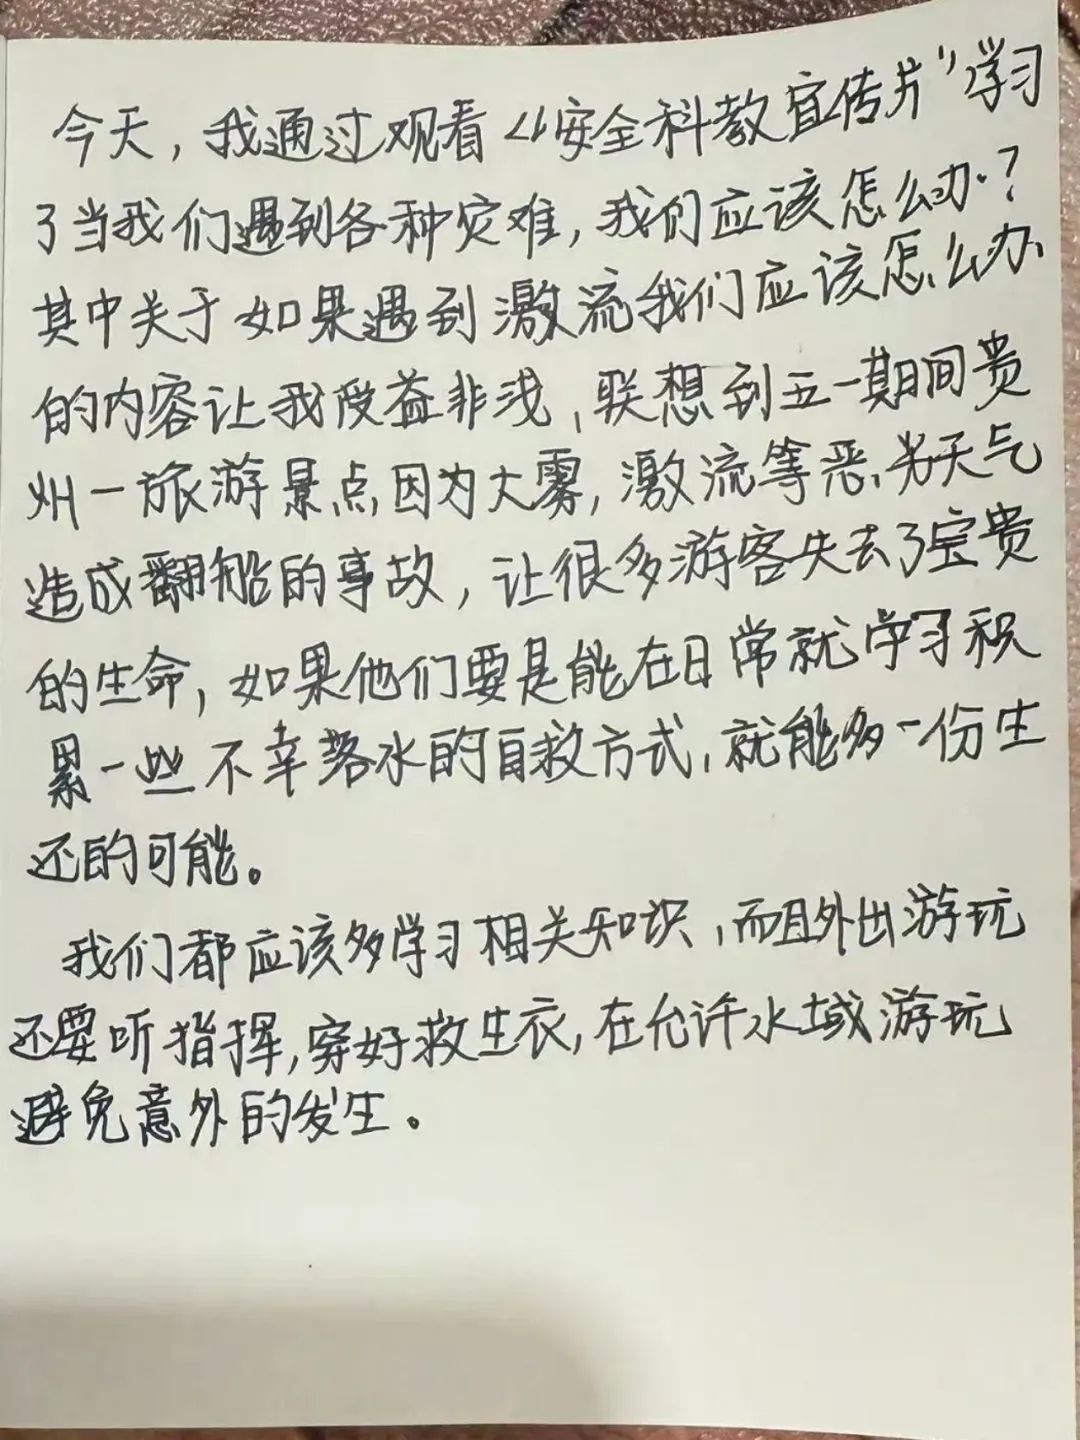 今天，我通过观看“安全科教宣传片”学习
了当我们遇到各种灾难，我们应该怎么办.？
其中关于如果遇到激流我们应该怎么办
的内容让我受益非浅，联想到五一期间贵
州一旅游景点因为大雾，激流等恶劣天气
造成翻船的事故，让很多游客失去了宝贵
的生命，如果他们要是能在日常就学习积
累一些不幸落水的自救方式，就能多一份生
还的可能。
我们都应该多学习相关知识，而且外出游玩
还要听指挥，穿好救生衣，在允许水域游玩
避免意外的发生。